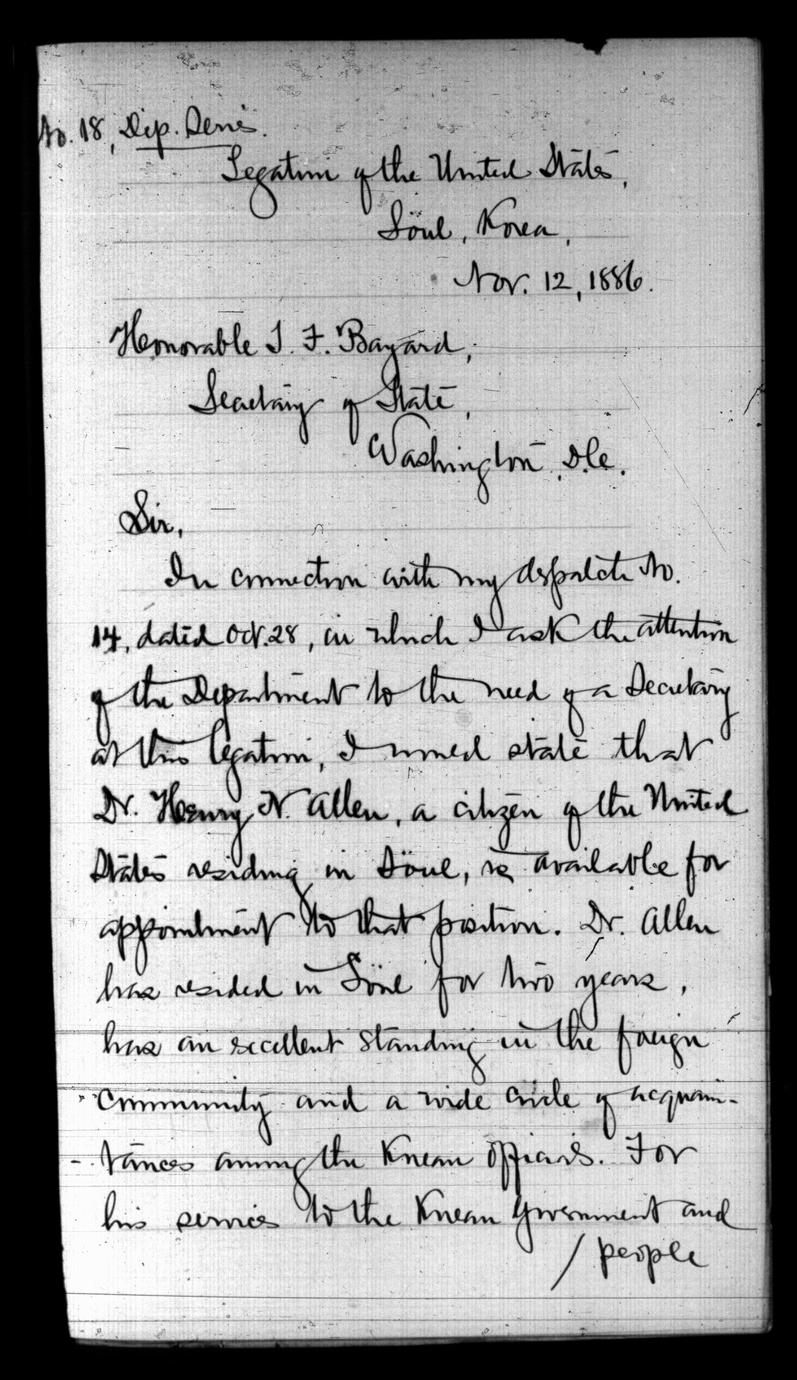 No. 18, Dip. Series.
Legation of the United States,
Söul, Korea,
Nov. 12, 1886.
Honorable T. F. Bayard,
Secretary of State,
Washington, D.C.
Sir,
In connection with my dispatch No.
14, dated Oct. 28, in which I ask the attention
of the Department to the need of a Secretary
at this legation, I would state that
Dr. Henry N. Allen, a citizen of the United
States residing in Söul, is available for
appointment to that position. Dr. Allen
has resided in Söul for two years,
has an excellent standing in the foreign
community and a wide circle of acquain-
tances among the Korean officials. For
his services to the Korean Government and
/ people